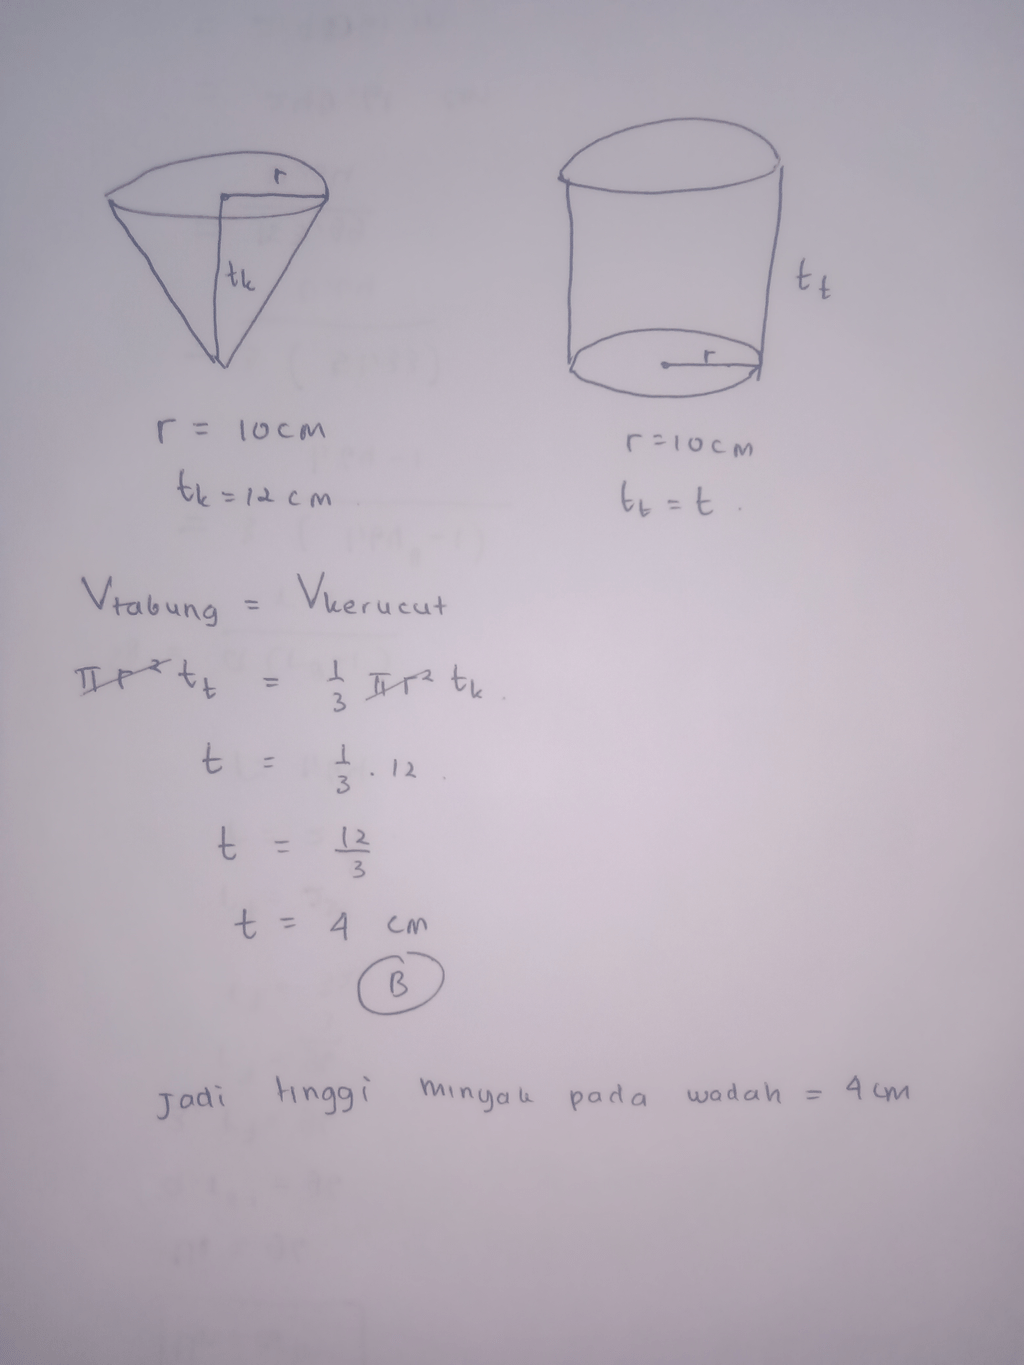 r
tk
r
tt
r = 10 cm
tk = 12 cm
r = 10 cm
tt = t
Vtabung = Vkerucut
πr² tt = 1/3 πr² tk
t = 1/3 . 12
t = 12/3
t = 4 cm
B
Jadi tinggi minyak pada wadah = 4 cm